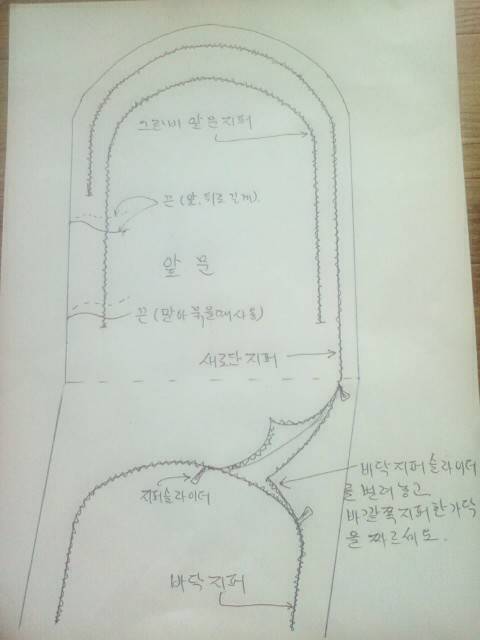 그란비 앞문지퍼
끈(앞,뒤로 길게)
앞 문
끈(말아 묶을때사용)
새로단지퍼
지퍼슬라이더
바닥 지퍼슬라이더
를 벌려 놓고
바깥쪽 지퍼 한가닥
을 짜르세요.
바닥 지퍼